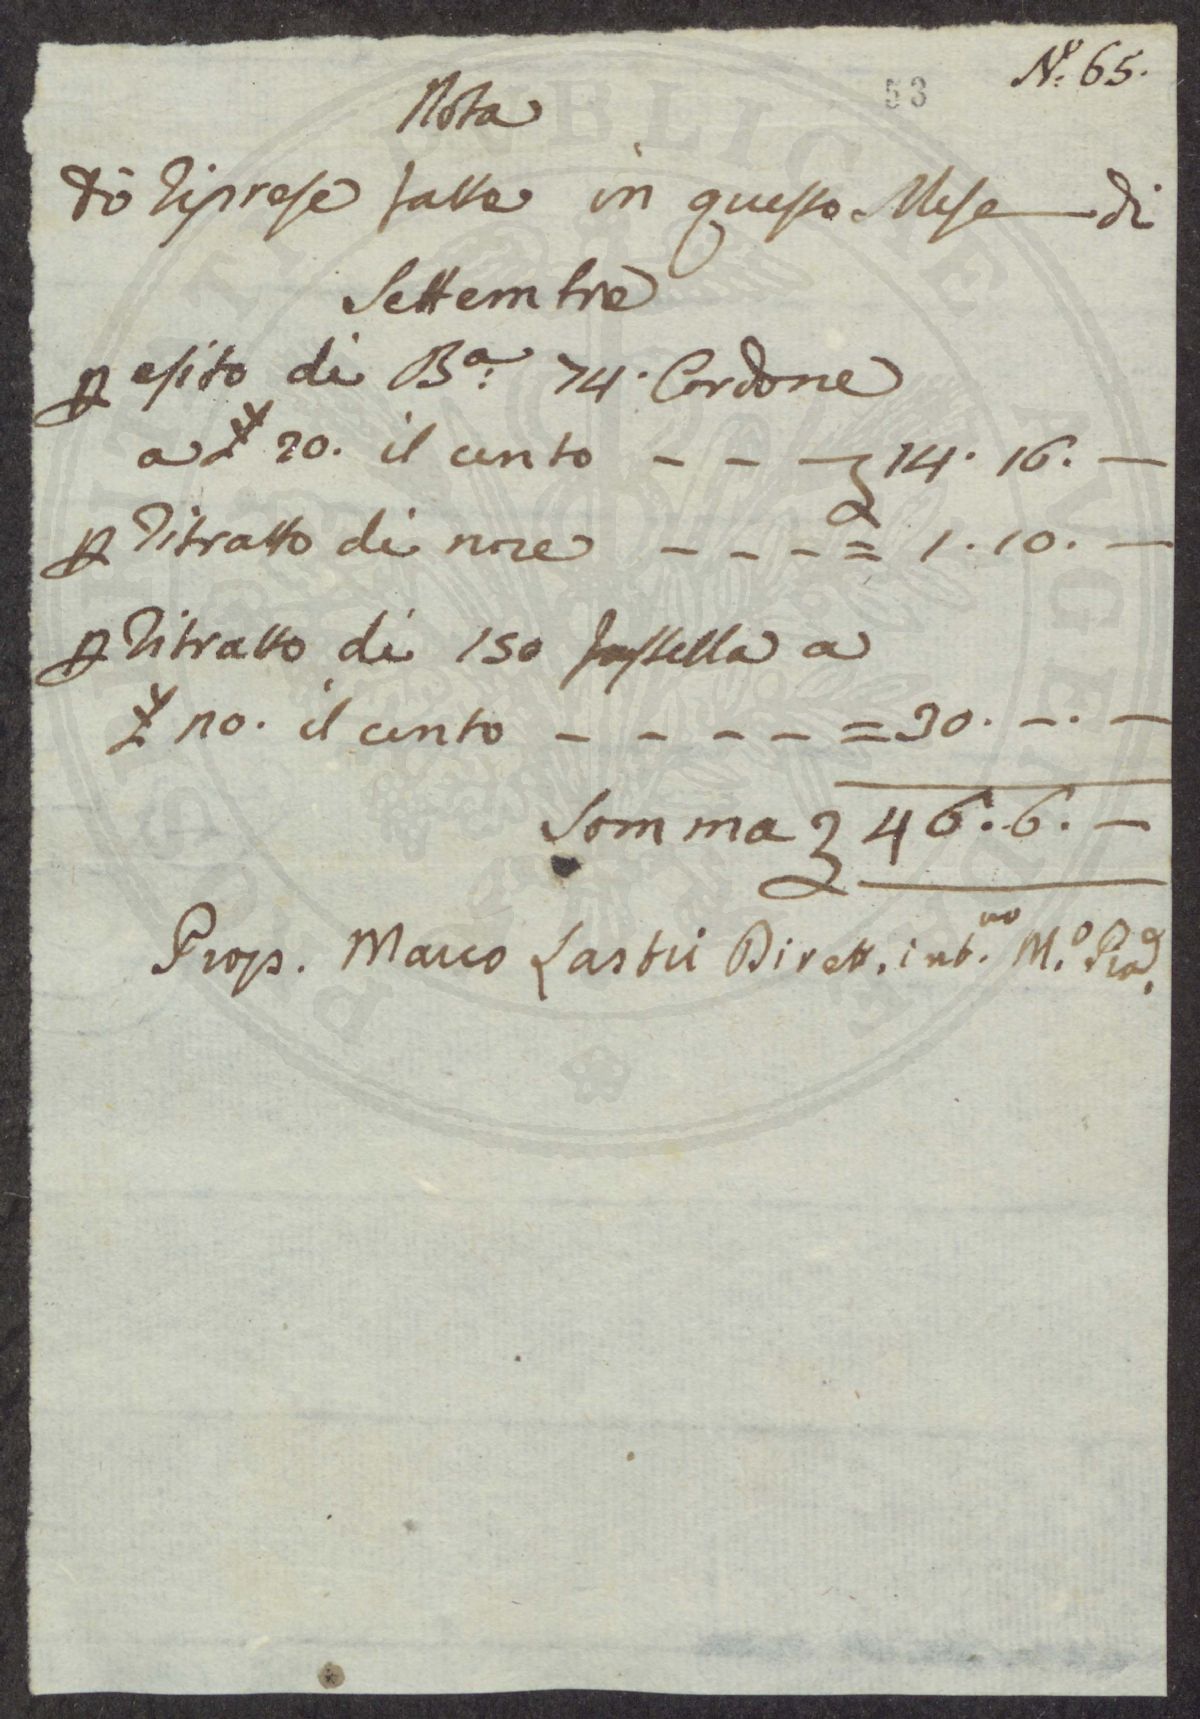 Nº 65.
53
Nota
di Riprese fatte in questo Mese di
Settembre
p esito di Bª: 74. Cordone
a £ 20. il cento - - - £ 14. 16. —
p Ritratto di noce - - - = 1. 10. —
p Ritratto di 150 fastella a
£ 20. il cento - - - - = 30. -. —
Somma £ 46. 6. —
Prop. Marco Lastri Dirett. int.no M.º Prod.